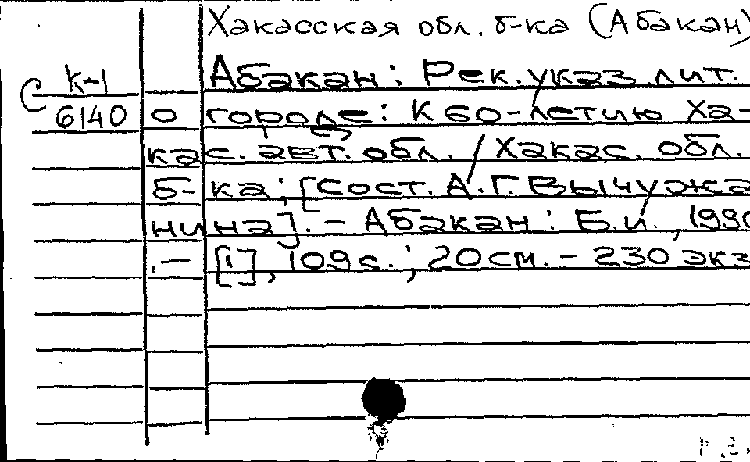 Хакасская обл. б-ка (Абакан)
Абакан: Рек. указ. лит.
С К-1
6140 о городе: К 60-летию Ха-
кас. авт. обл. / Хакас. обл.
б-ка; [Сост. А.Г. Вычужа
нина]. – Абакан: Б.и., 1990
. – [1], 109 с.; 20 см. – 230 экз